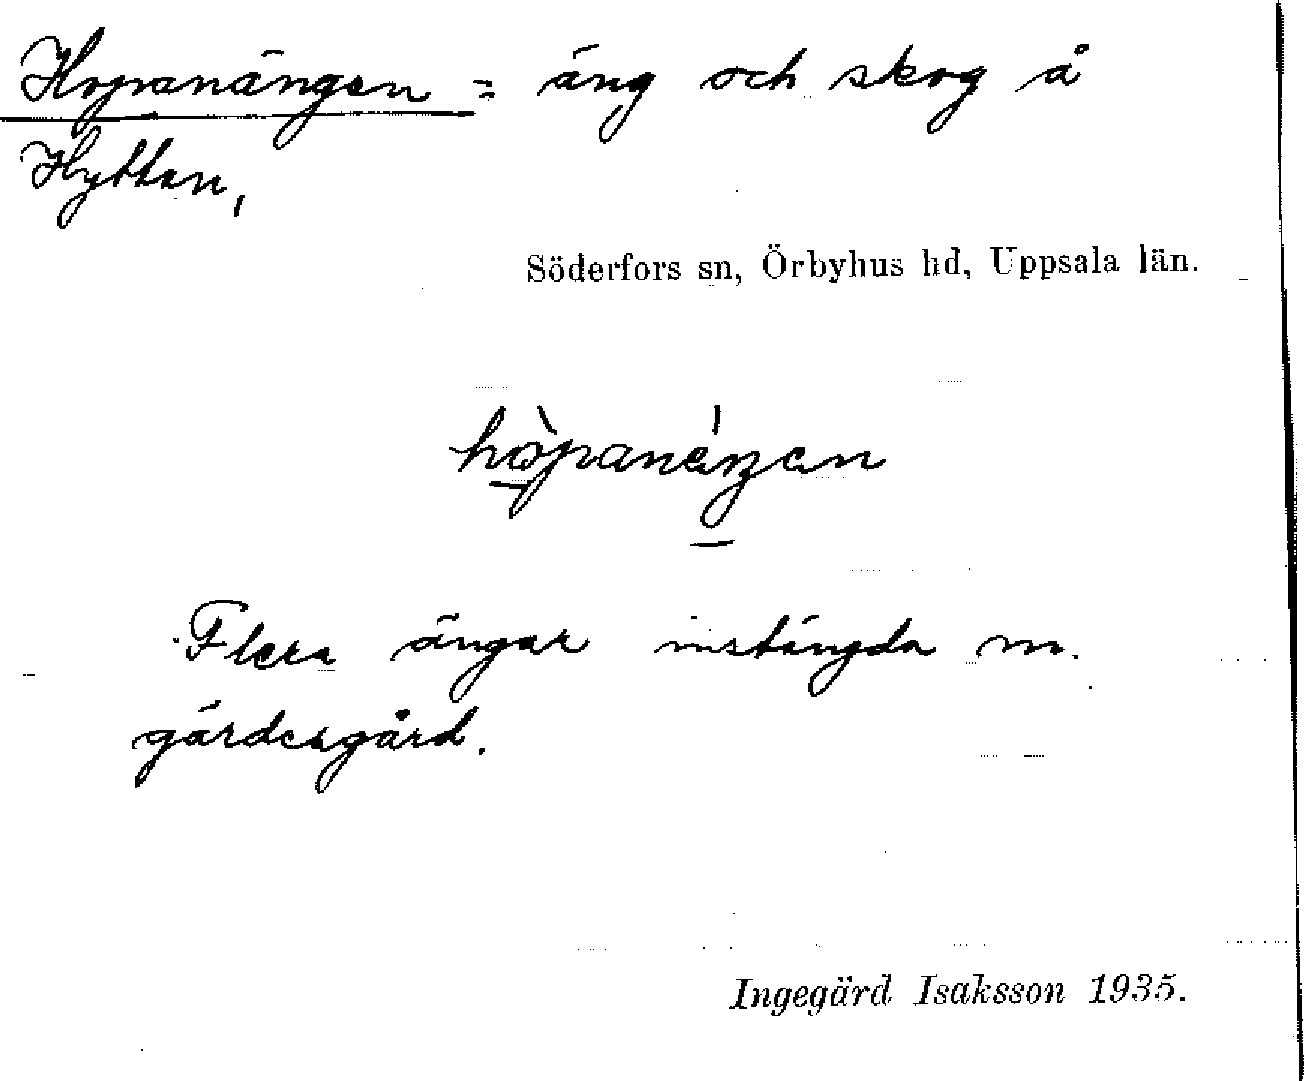 Hopanängen = äng och skog å
Hyttan,
Söderfors sn, Örbyhus hd, Uppsala län.
Flera ängar instängda m.
gärdesgård.
Ingegärd Isaksson 1935.